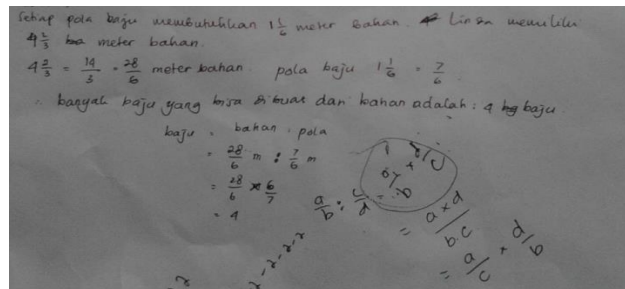 Setiap pola baju membutuhkan 1 1/6 meter bahan. Linsa memiliki
4 2/3 meter bahan.
4 2/3 = 14/3 = 28/6 meter bahan. pola baju 1 1/6 = 7/6.
∴ banyak baju yang bisa dibuat dari bahan adalah : 4 baju
baju = bahan : pola
= 28/6 m : 7/6 m
= 28/6 × 6/7
= 4
a/b : c/d =
= a×d/b.c
= a/c × d/b